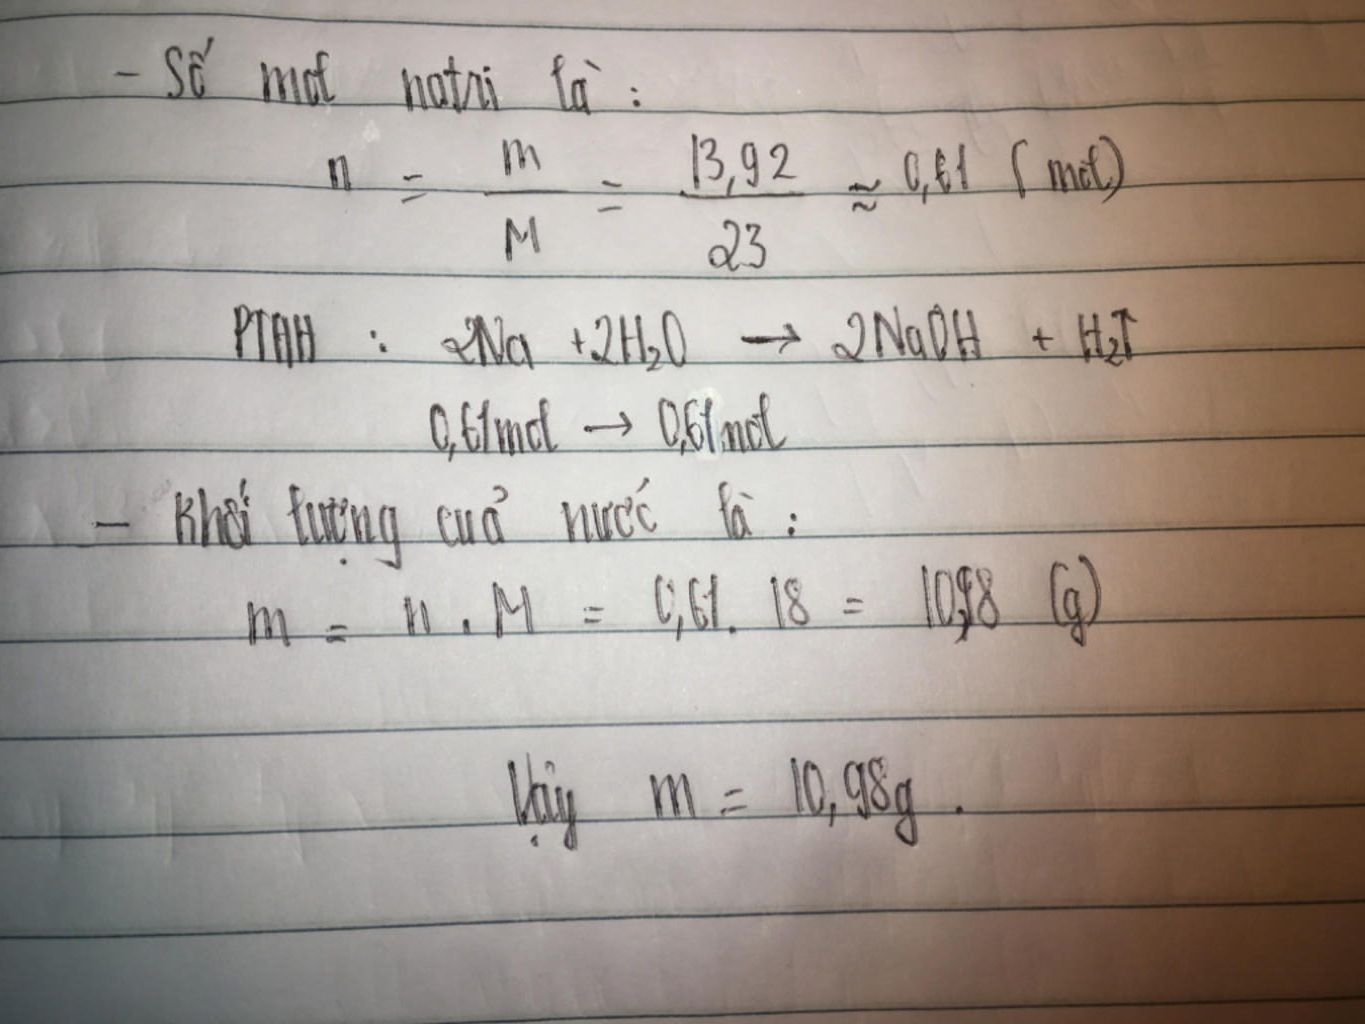 - Số mol natri là :
n = m / M = 13,92 / 23 ≈ 0,61 (mol)
PTHH : 2Na + 2H₂O → 2NaOH + H₂↑
0,61mol → 0,61mol
- Khối lượng cuả nước là :
m = n . M = 0,61. 18 = 10,98 (g)
Vậy m = 10,98g .